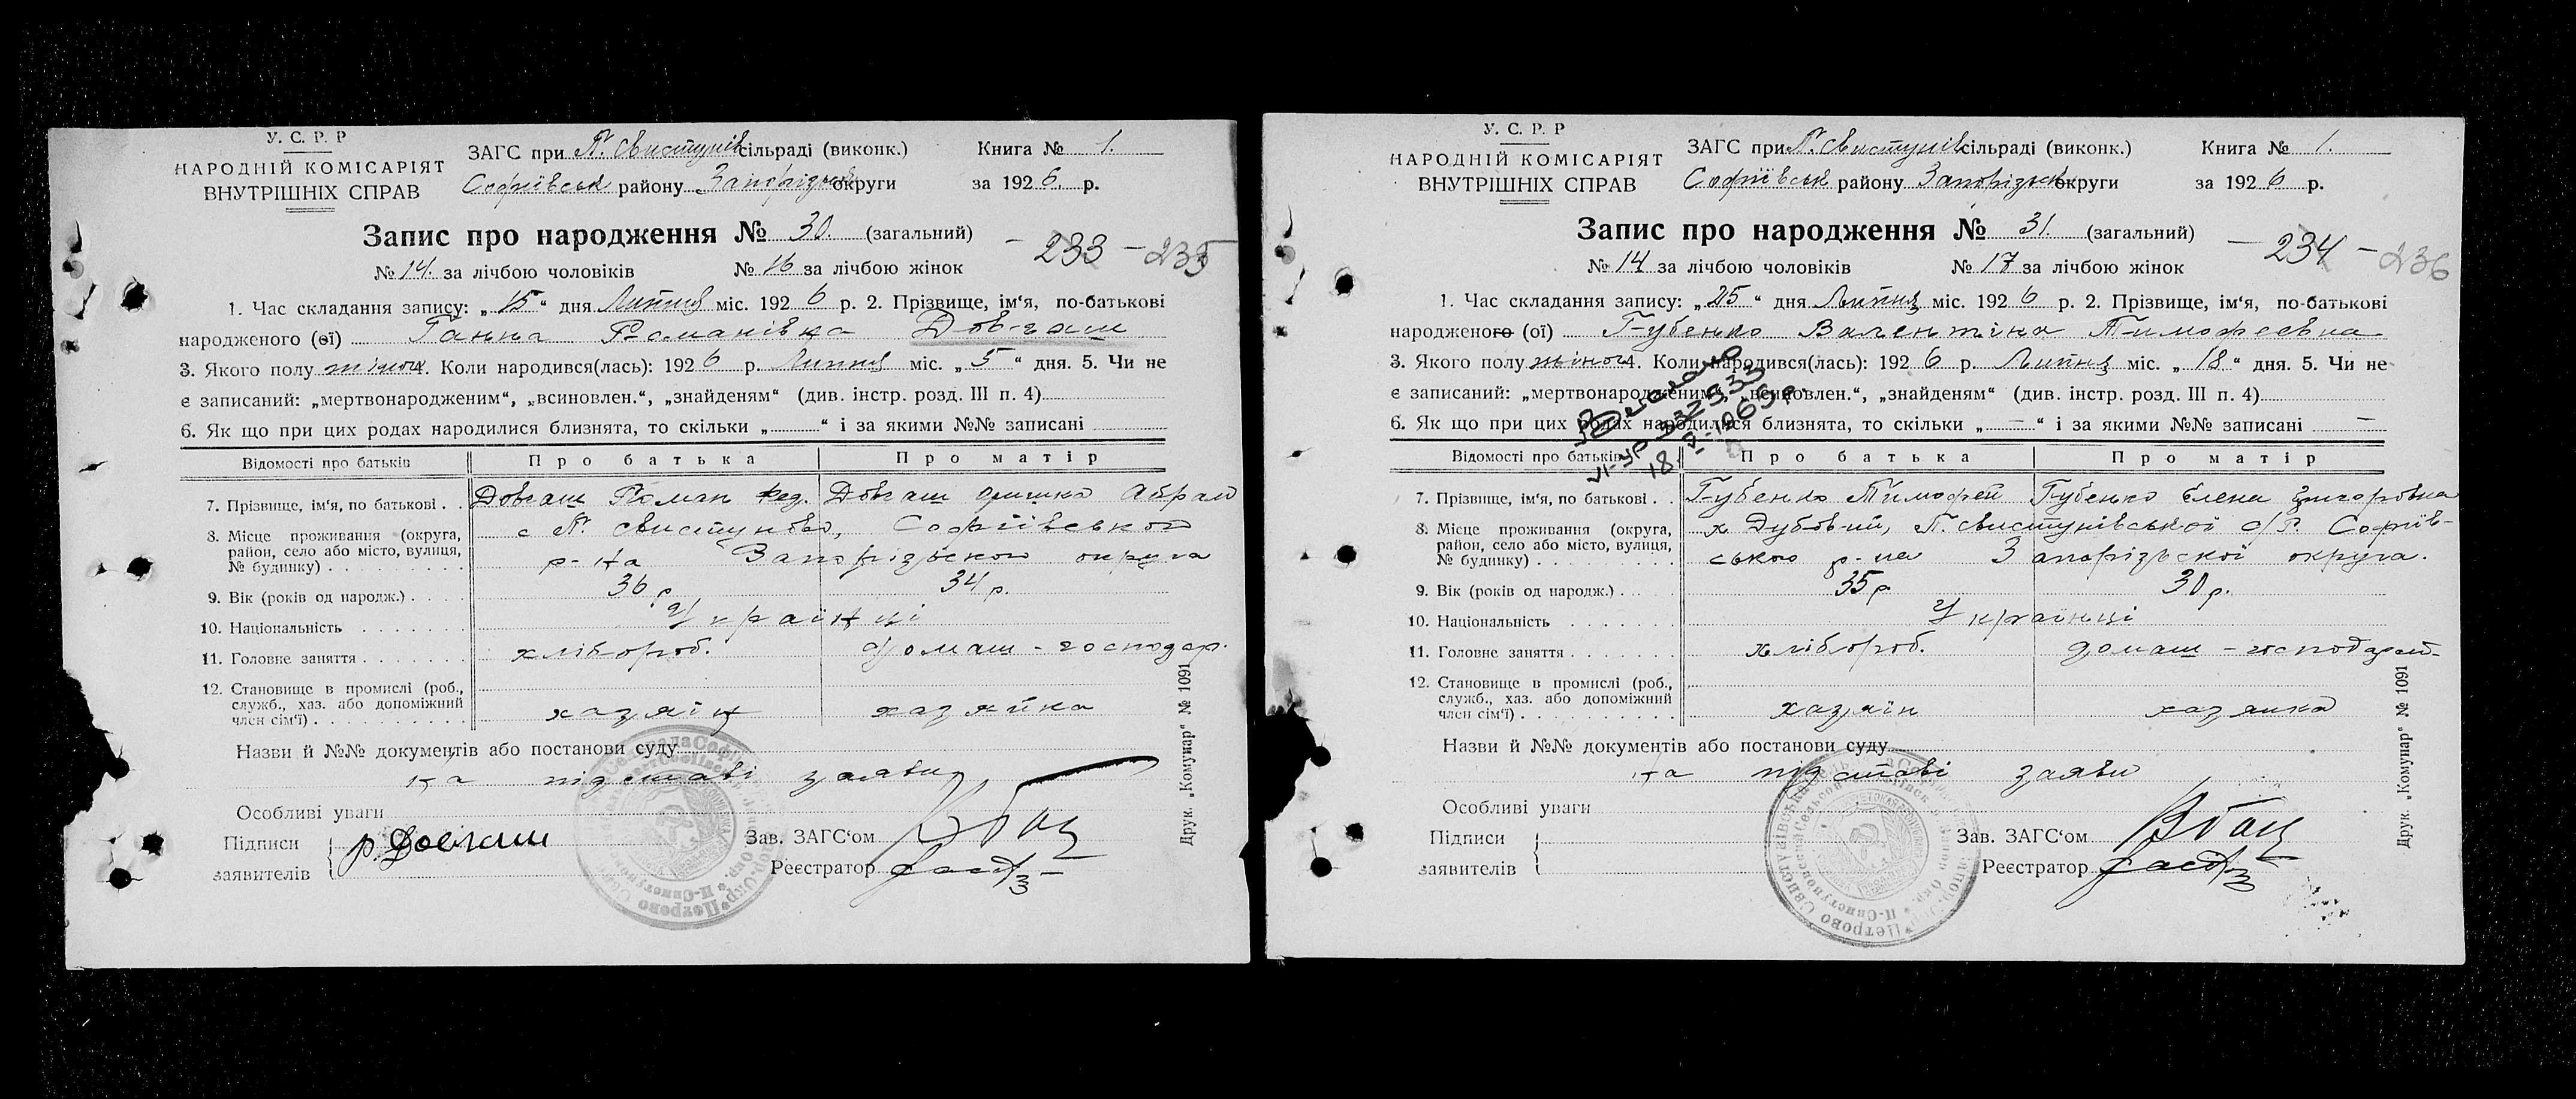 У. С. Р. Р
НАРОДНІЙ КОМІСАРІЯТ
ВНУТРІШНІХ СПРАВ
ЗАГС при П. Свистунів сільраді (виконк.) Книга № 1.
Софіївськ району Запорізьк округи за 1926. р.
Запис про народження № 30. (загальний)
— 233 — 235
№ 14. за лічбою чоловіків № 16 за лічбою жінок
1. Час складання запису: „15“ дня Липня міс. 1926 р. 2. Прізвище, ім‘я, по-батькові
народженого (ої) Ганна Романівна Довгаш
3. Якого полу жіноч 4. Коли народився(лась): 1926 р. Липня міс. „5“ дня. 5. Чи не
є записаний: „мертвонародженим“, „всиновлен.“, „знайденям“ (див. інстр. розд. III п. 4)
6. Як що при цих родах народилися близнята, то скільки „ “ і за якими №№ записані
Відомості про батьків Про батька Про матір
7. Прізвище, ім‘я, по батькові . . Довгаш Роман Фед. Довгаш Оришка Абрам
8. Місце проживання (округа, район, село або місто, вулиця, № будинку) с П. Свистуново, Софіївського
р-на Запорізького округа
9. Вік (років од народж.) 36 р 34 р.
10. Національність Українці
11. Головне заняття хлібороб. домаш-господар.
12. Становище в промислі (роб., служб., хаз. або допоміжний член сім‘ї) хазяїн хазяйка
Назви й №№ документів або постанови суду
на підставі заяви
Особливі уваги
Підписи заявителів Р. Довгаш
Зав. ЗАГС‘ом
Реєстратор
Друк. „Комунар“ № 1091
У. С. Р. Р
НАРОДНІЙ КОМІСАРІЯТ
ВНУТРІШНІХ СПРАВ
ЗАГС при П. Свистунів сільраді (виконк.) Книга № 1.
Софіївськ району Запорізьк округи за 1926 р.
Запис про народження № 31. (загальний)
— 234 — 236
№ 14 за лічбою чоловіків № 17 за лічбою жінок
1. Час складання запису: „25“ дня Липня міс. 1926 р. 2. Прізвище, ім‘я, по-батькові
народженого (ої) Губенко Валентіна Тимофеевна
3. Якого полу жіноч 4. Коли народився(лась): 1926 р. Липня міс. „18“ дня. 5. Чи не
є записаний: „мертвонародженим“, „всиновлен.“, „знайденям“ (див. інстр. розд. III п. 4)
6. Як що при цих родах народилися близнята, то скільки „—“ і за якими №№ записані —
Відомості про батьків Про батька Про матір
7. Прізвище, ім‘я, по батькові . . Губенко Тимофей Губенко Елена Григоровна
8. Місце проживання (округа, район, село або місто, вулиця, № будинку) х Дубовий, П. Свистунівської с/Р. Софіїв-
ського р-на Запорізької округа.
9. Вік (років од народж.) 35 р. 30 р.
10. Національність Українці
11. Головне заняття хлібороб. домаш-господарст-
12. Становище в промислі (роб., служб., хаз. або допоміжний член сім‘ї) хазяїн хазяйка
Назви й №№ документів або постанови суду
на підставі заяви
Особливі уваги
Підписи заявителів
Зав. ЗАГС‘ом
Реєстратор
Друк. „Комунар“ № 1091